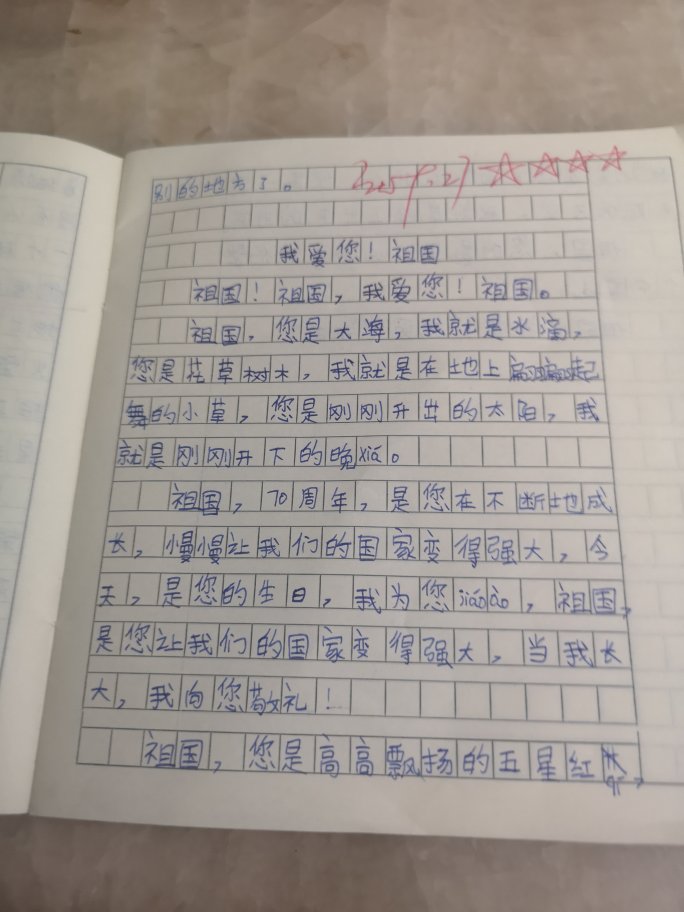 别的地方了。
我爱您！祖国
祖国！祖国，我爱您！祖国。
祖国，您是大海，我就是水滴，
您是花草树木，我就是在地上翩翩起
舞的小草，您是刚刚升出的太阳，我
就是刚刚升下的晚xiá。
祖国，70周年，是您在不断地成
长，慢慢让我们的国家变得强大，今
天，是您的生日，我为您jiāoào，祖国，
是您让我们的国家变得强大，当我长
大，我向您敬礼！
祖国，您是高高飘扬的五星红